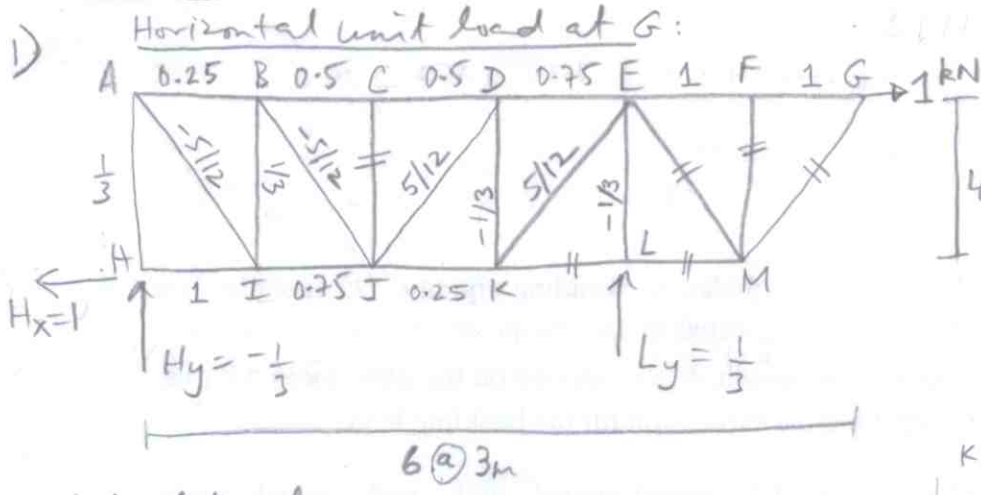 1) Horizontal unit load at G:
A 0.25 B 0.5 C 0.5 D 0.75 E 1 F 1 G 1 kN
1/3 -5/12 1/3 -5/12 5/12 -1/3 5/12 -1/3 4
H 1 I 0.75 J 0.25 K L M
Hx=1
Hy = -1/3 Ly = 1/3
6 @ 3m
K